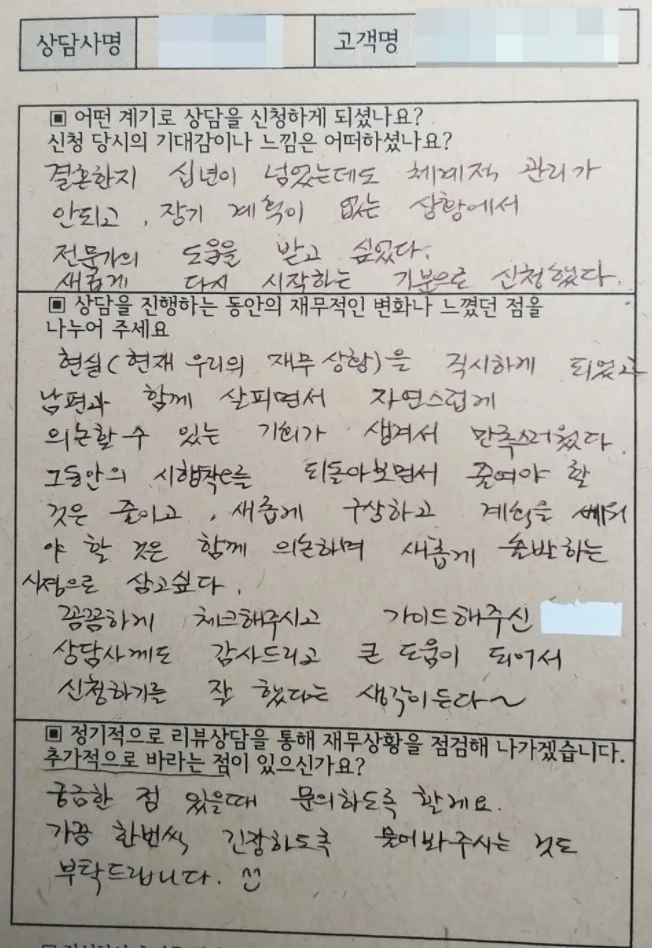 상담사명
고객명
▣ 어떤 계기로 상담을 신청하게 되셨나요?
신청 당시의 기대감이나 느낌은 어떠하셨나요?
결혼한지 십년이 넘었는데도 체계적 관리가
안되고, 장기 계획이 없는 상황에서
전문가의 도움을 받고 싶었다.
새롭게 다시 시작하는 기분으로 신청했다.
▣ 상담을 진행하는 동안의 재무적인 변화나 느꼈던 점을
나누어 주세요
현실(현재 우리의 재무 상황)을 직시하게 되었고
남편과 함께 살피면서 자연스럽게
의논할 수 있는 기회가 생겨서 만족스러웠다.
그동안의 시행착오를 되돌아보면서 줄여야 할
것은 줄이고, 새롭게 구상하고 계획을 세워
야 할 것은 함께 의논하며 새롭게 출발하는
시점으로 삼고싶다.
꼼꼼하게 체크해주시고 가이드해주신
상담사께도 감사드리고 큰 도움이 되어서
신청하기를 잘 했다는 생각이 든다~
▣ 정기적으로 리뷰상담을 통해 재무상황을 점검해 나가겠습니다.
추가적으로 바라는 점이 있으신가요?
궁금한 점 있을때 문의하도록 할게요.
가끔 한번씩 긴장하도록 물어봐주시는 것도
부탁드립니다.